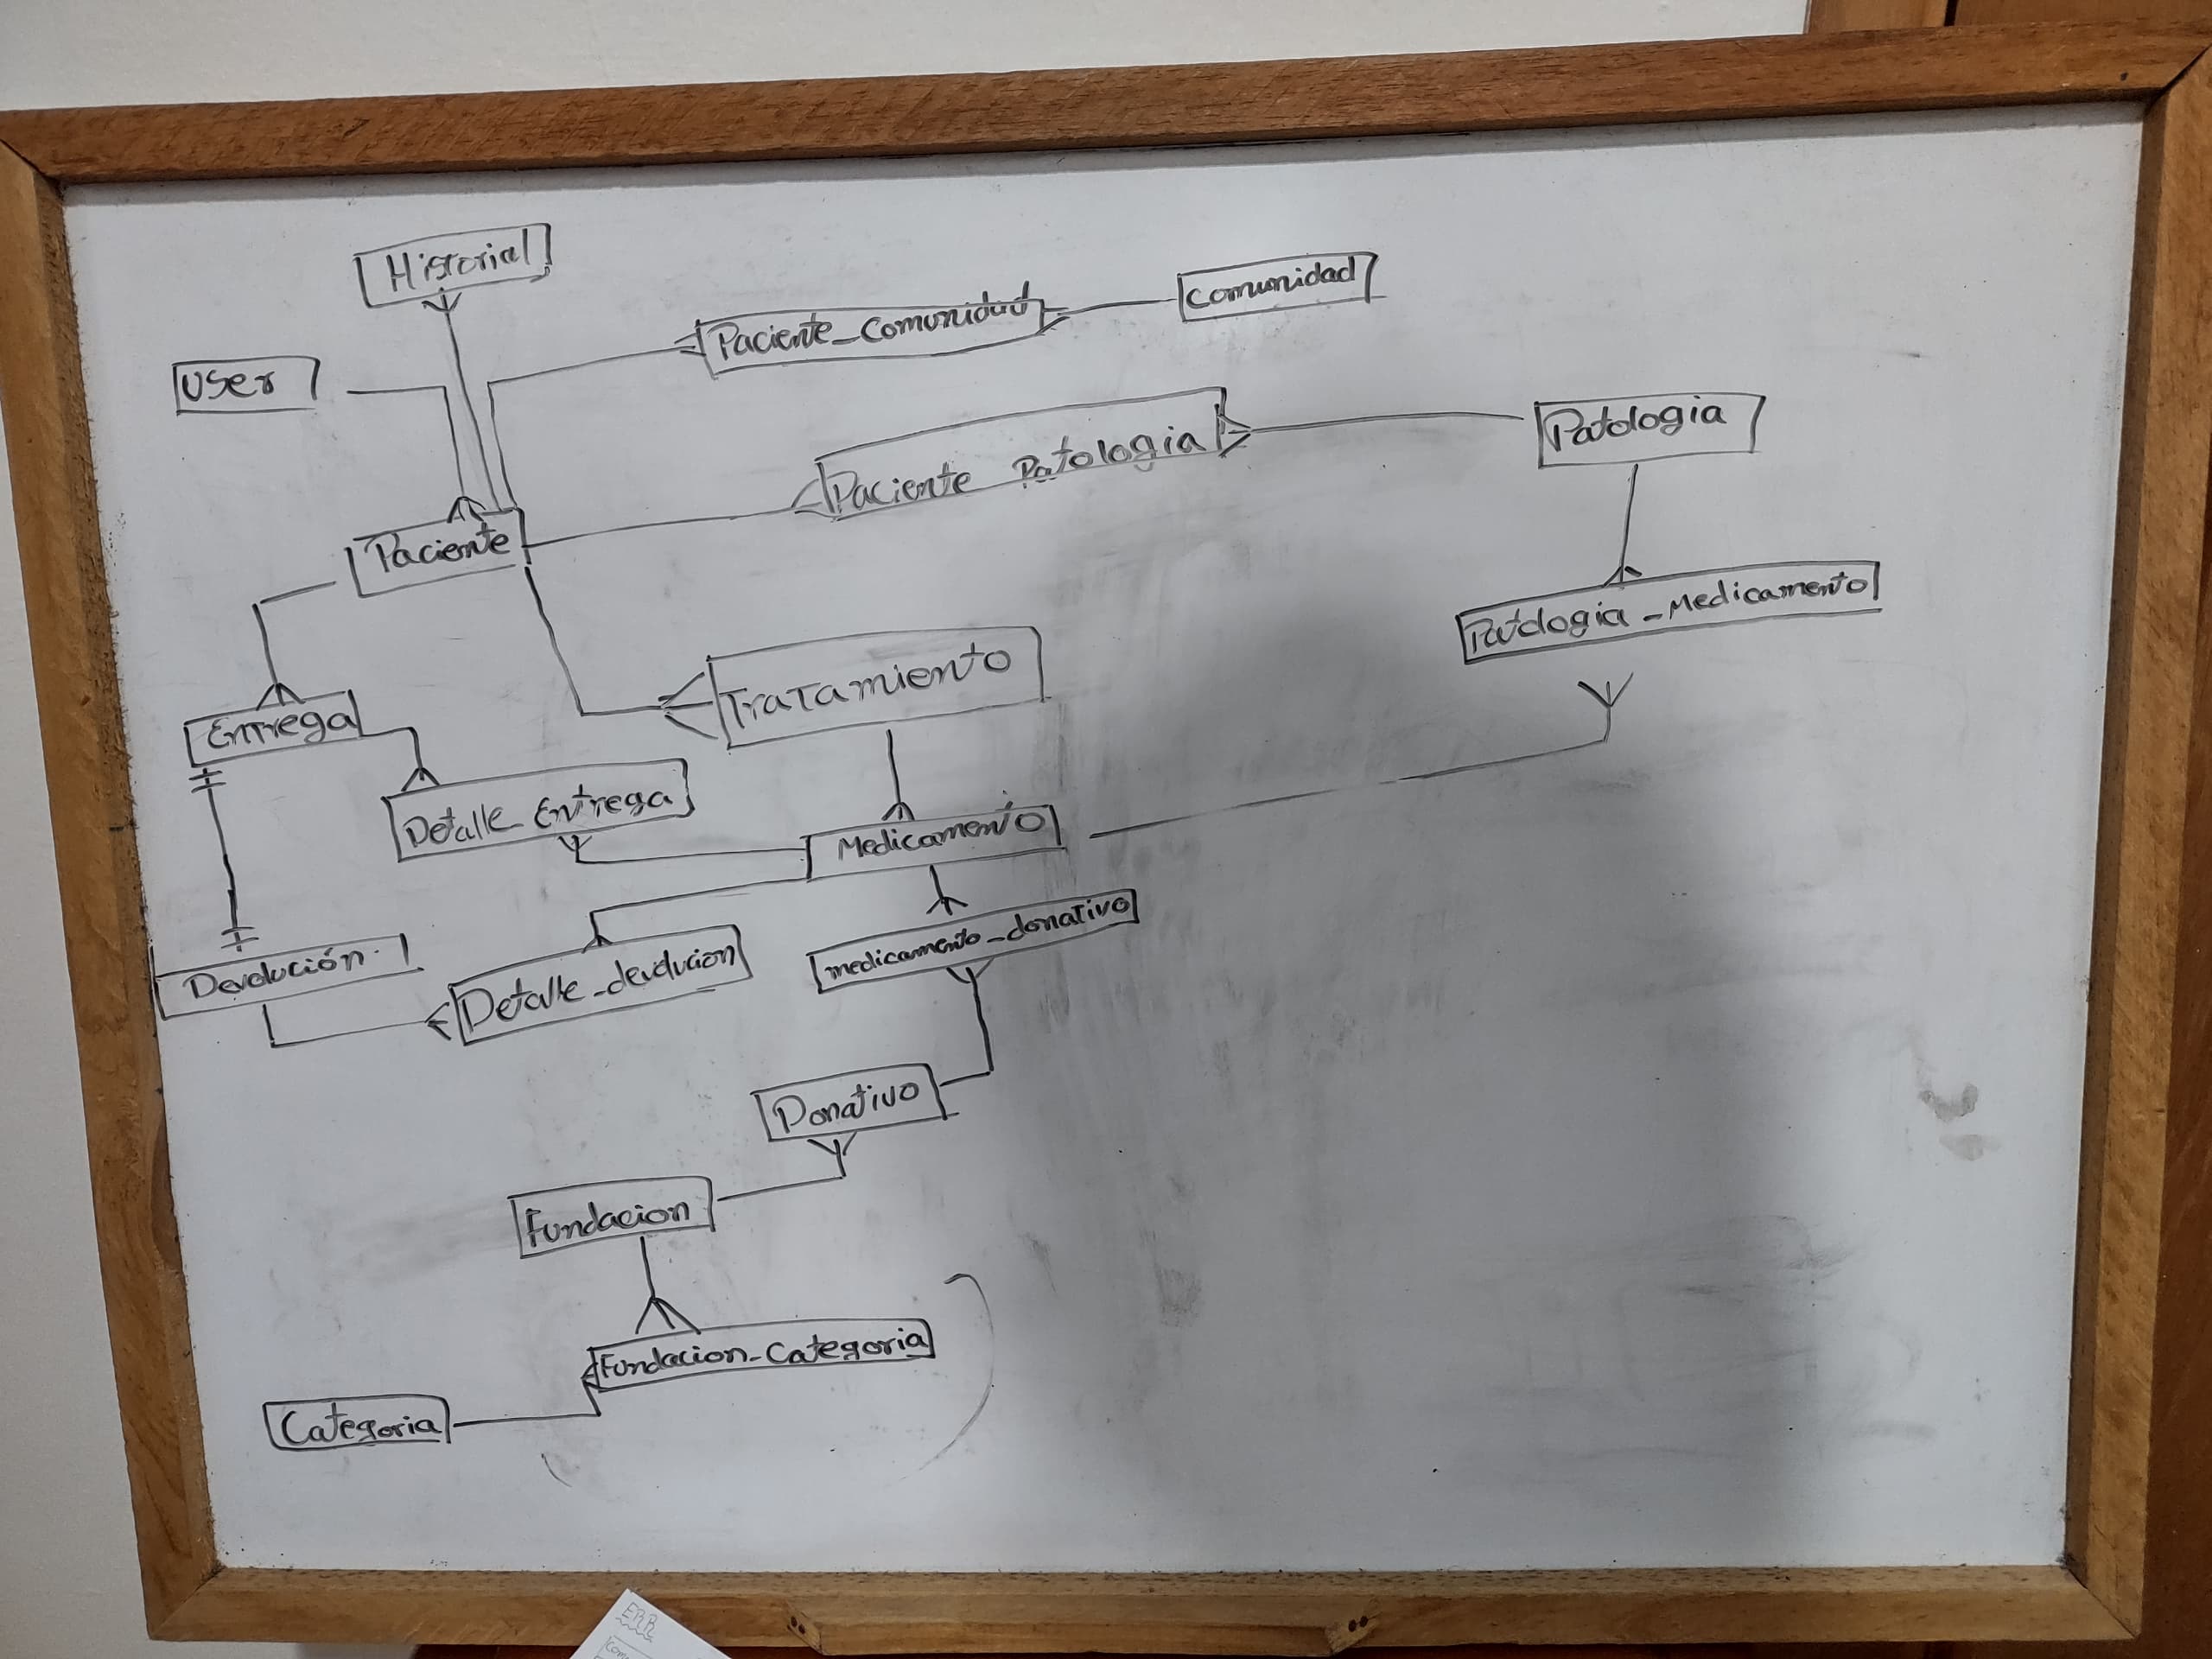 Historial
Comunidad
Paciente_Comunidad
User
Patologia
Paciente Patologia
Paciente
Patologia_Medicamento
Tratamiento
Entrega
Detalle_Entrega
Medicamento
medicamento_donativo
Devolución.
Detalle_devolucion
Donativo
Fundacion
Fundacion_Categoria
Categoria